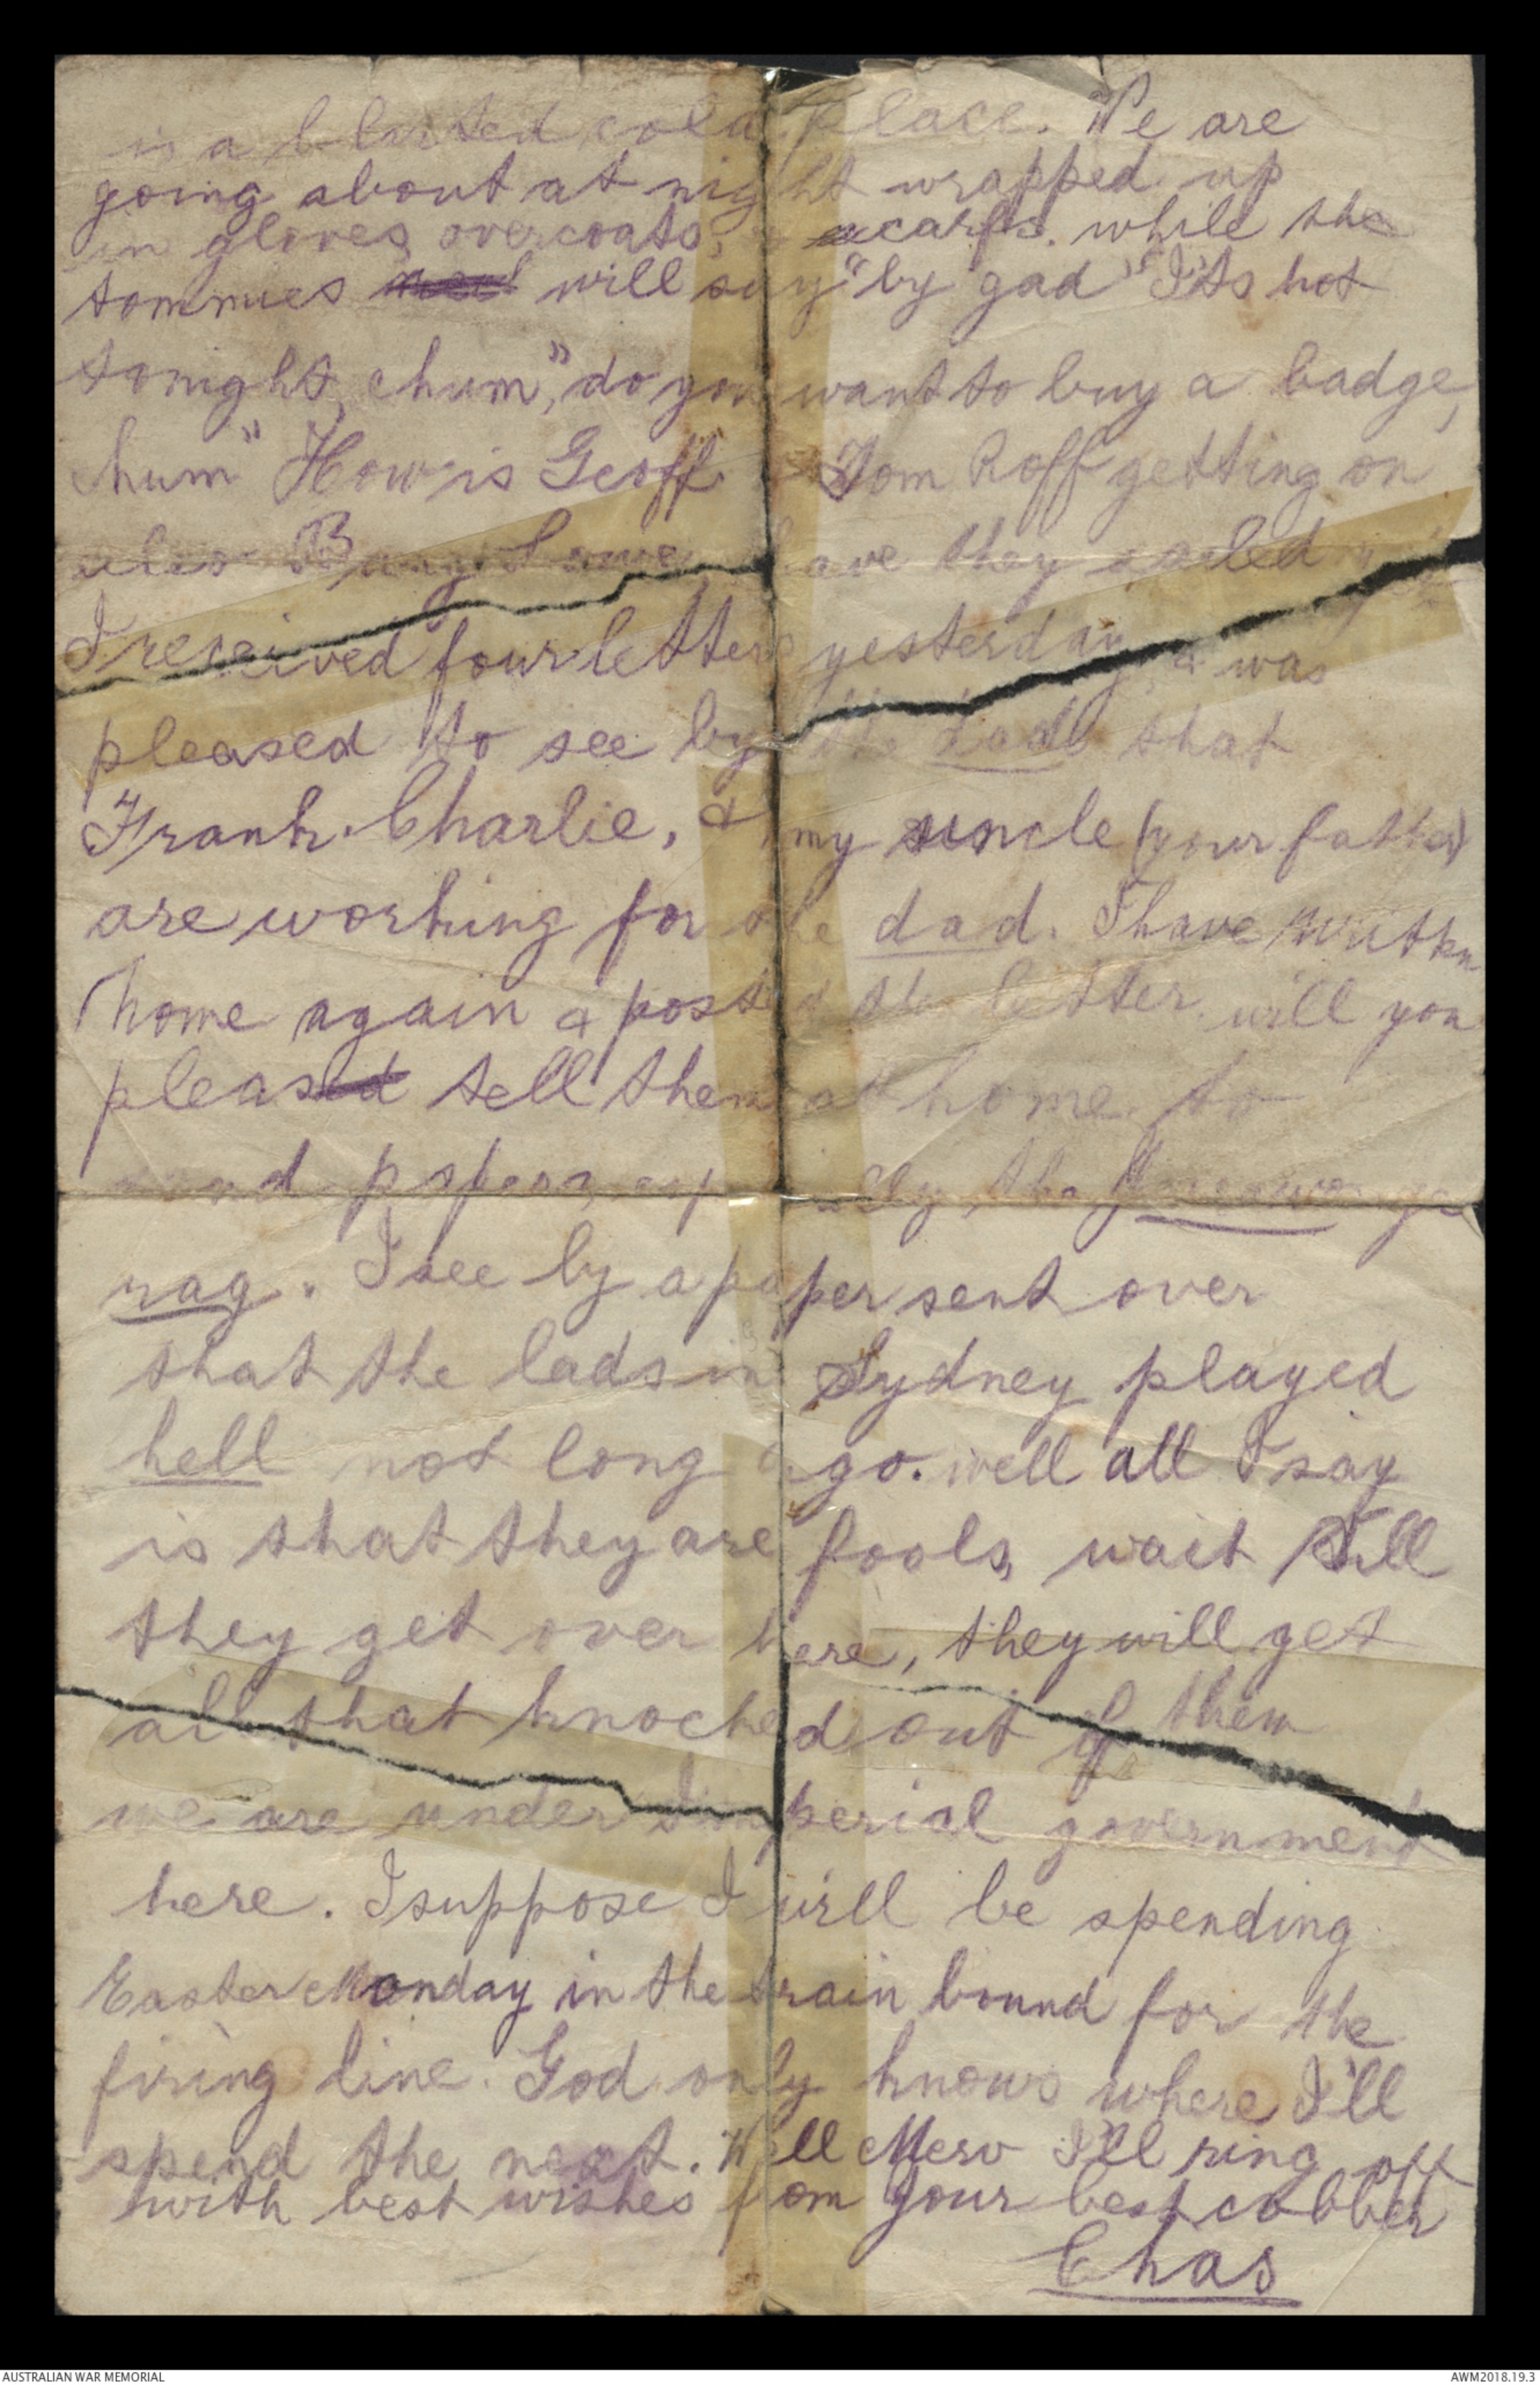 is a blasted cold place. We are
going about at night wrapped up
in gloves, overcoats, scarfs. while the
tommies will say "by gad" "It's hot
tonight, chum", "do you want to buy a badge,
chum" How is Geoff & Tom Roff getting on
also have they sailed yet
I received four letters yesterday, & was
pleased to see by the dads that
Frank. Charlie, & my uncle (your father)
are working for the dad. I have written
home again & posted the letter. will you
pleas tell them at home to
send papers, especially the
rag. I see by a paper sent over
that the lads in Sydney played
hell not long ago. well all I say
is that they are fools, wait till
they get over here, they will get
all that knocked out of them
we are under Imperial government
here. I suppose I will be spending
Easter Monday in the train bound for the
firing line. God only knows where I'll
spend the next. Well Merv I'll ring off
with best wishes from your best cobber
Chas
AUSTRALIAN WAR MEMORIAL
AWM2018.19.3